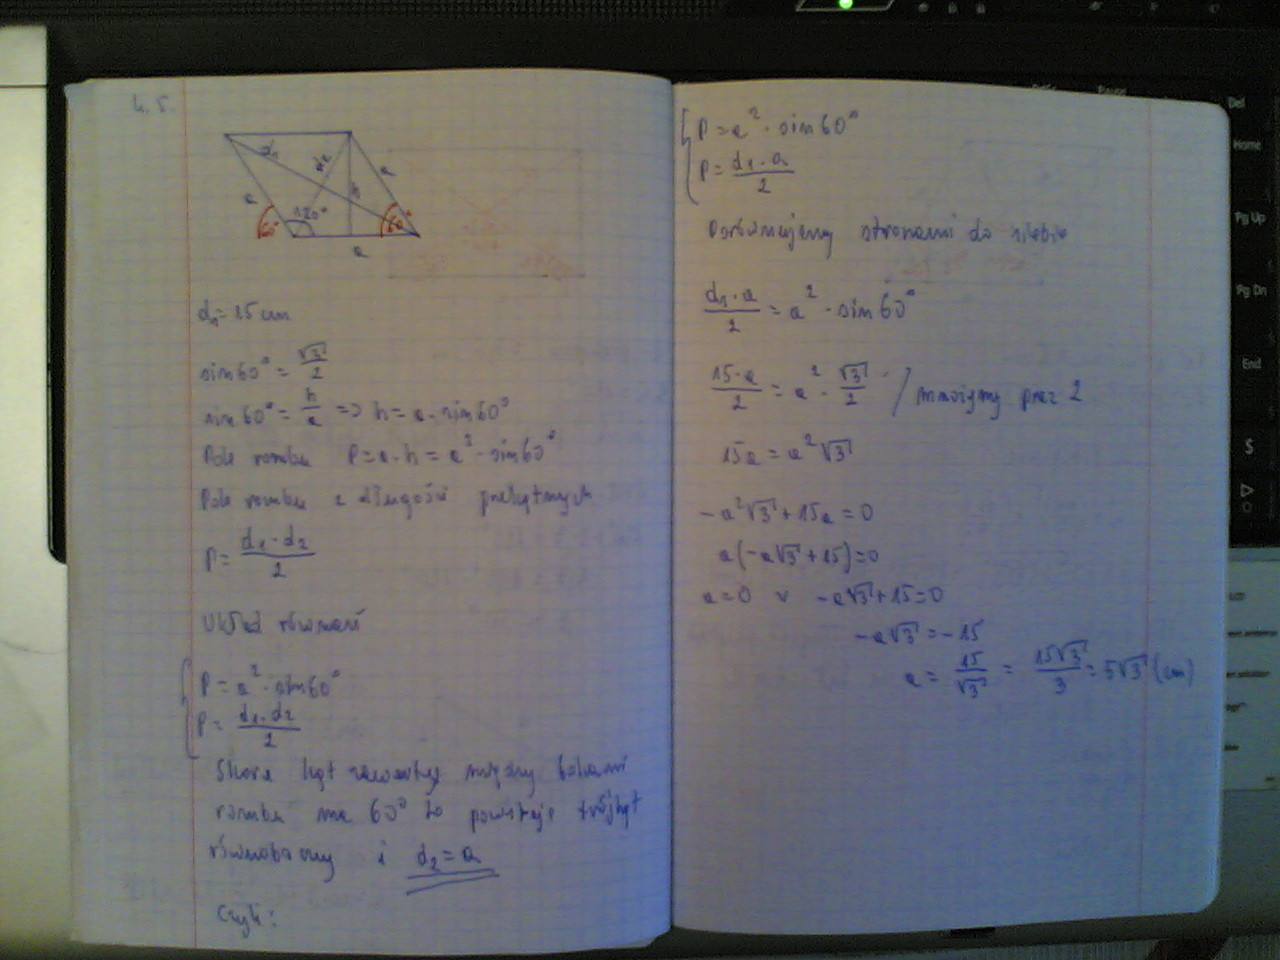 4.5.
d₁
d₂
a
h
a
120°
60°
60°
a
d₁ = 15 cm
sin60° = √3/2
sin60° = h/a => h = a·sin60°
Pole rombu P = a·h = a²·sin60°
Pole rombu z długości przekątnych
P = d₁·d₂/2
Układ równań
P = a²·sin60°
P = d₁·d₂/2
Skoro kąt zawarty między bokami
rombu ma 60° to powstaje trójkąt
równoboczny i d₂ = a
Czyli:
P = a²·sin60°
P = d₁·a/2
Porównujemy stronami do siebie
d₁·a/2 = a²·sin60°
15·a/2 = a²·√3/2 / mnożymy przez 2
15a = a²√3
-a²√3+15a=0
a(-a√3+15)=0
a=0 v -a√3+15=0
-a√3=-15
a = 15/√3 = 15√3/3 = 5√3 (cm)
Del
Home
Pg Up
Pg Dn
End
$